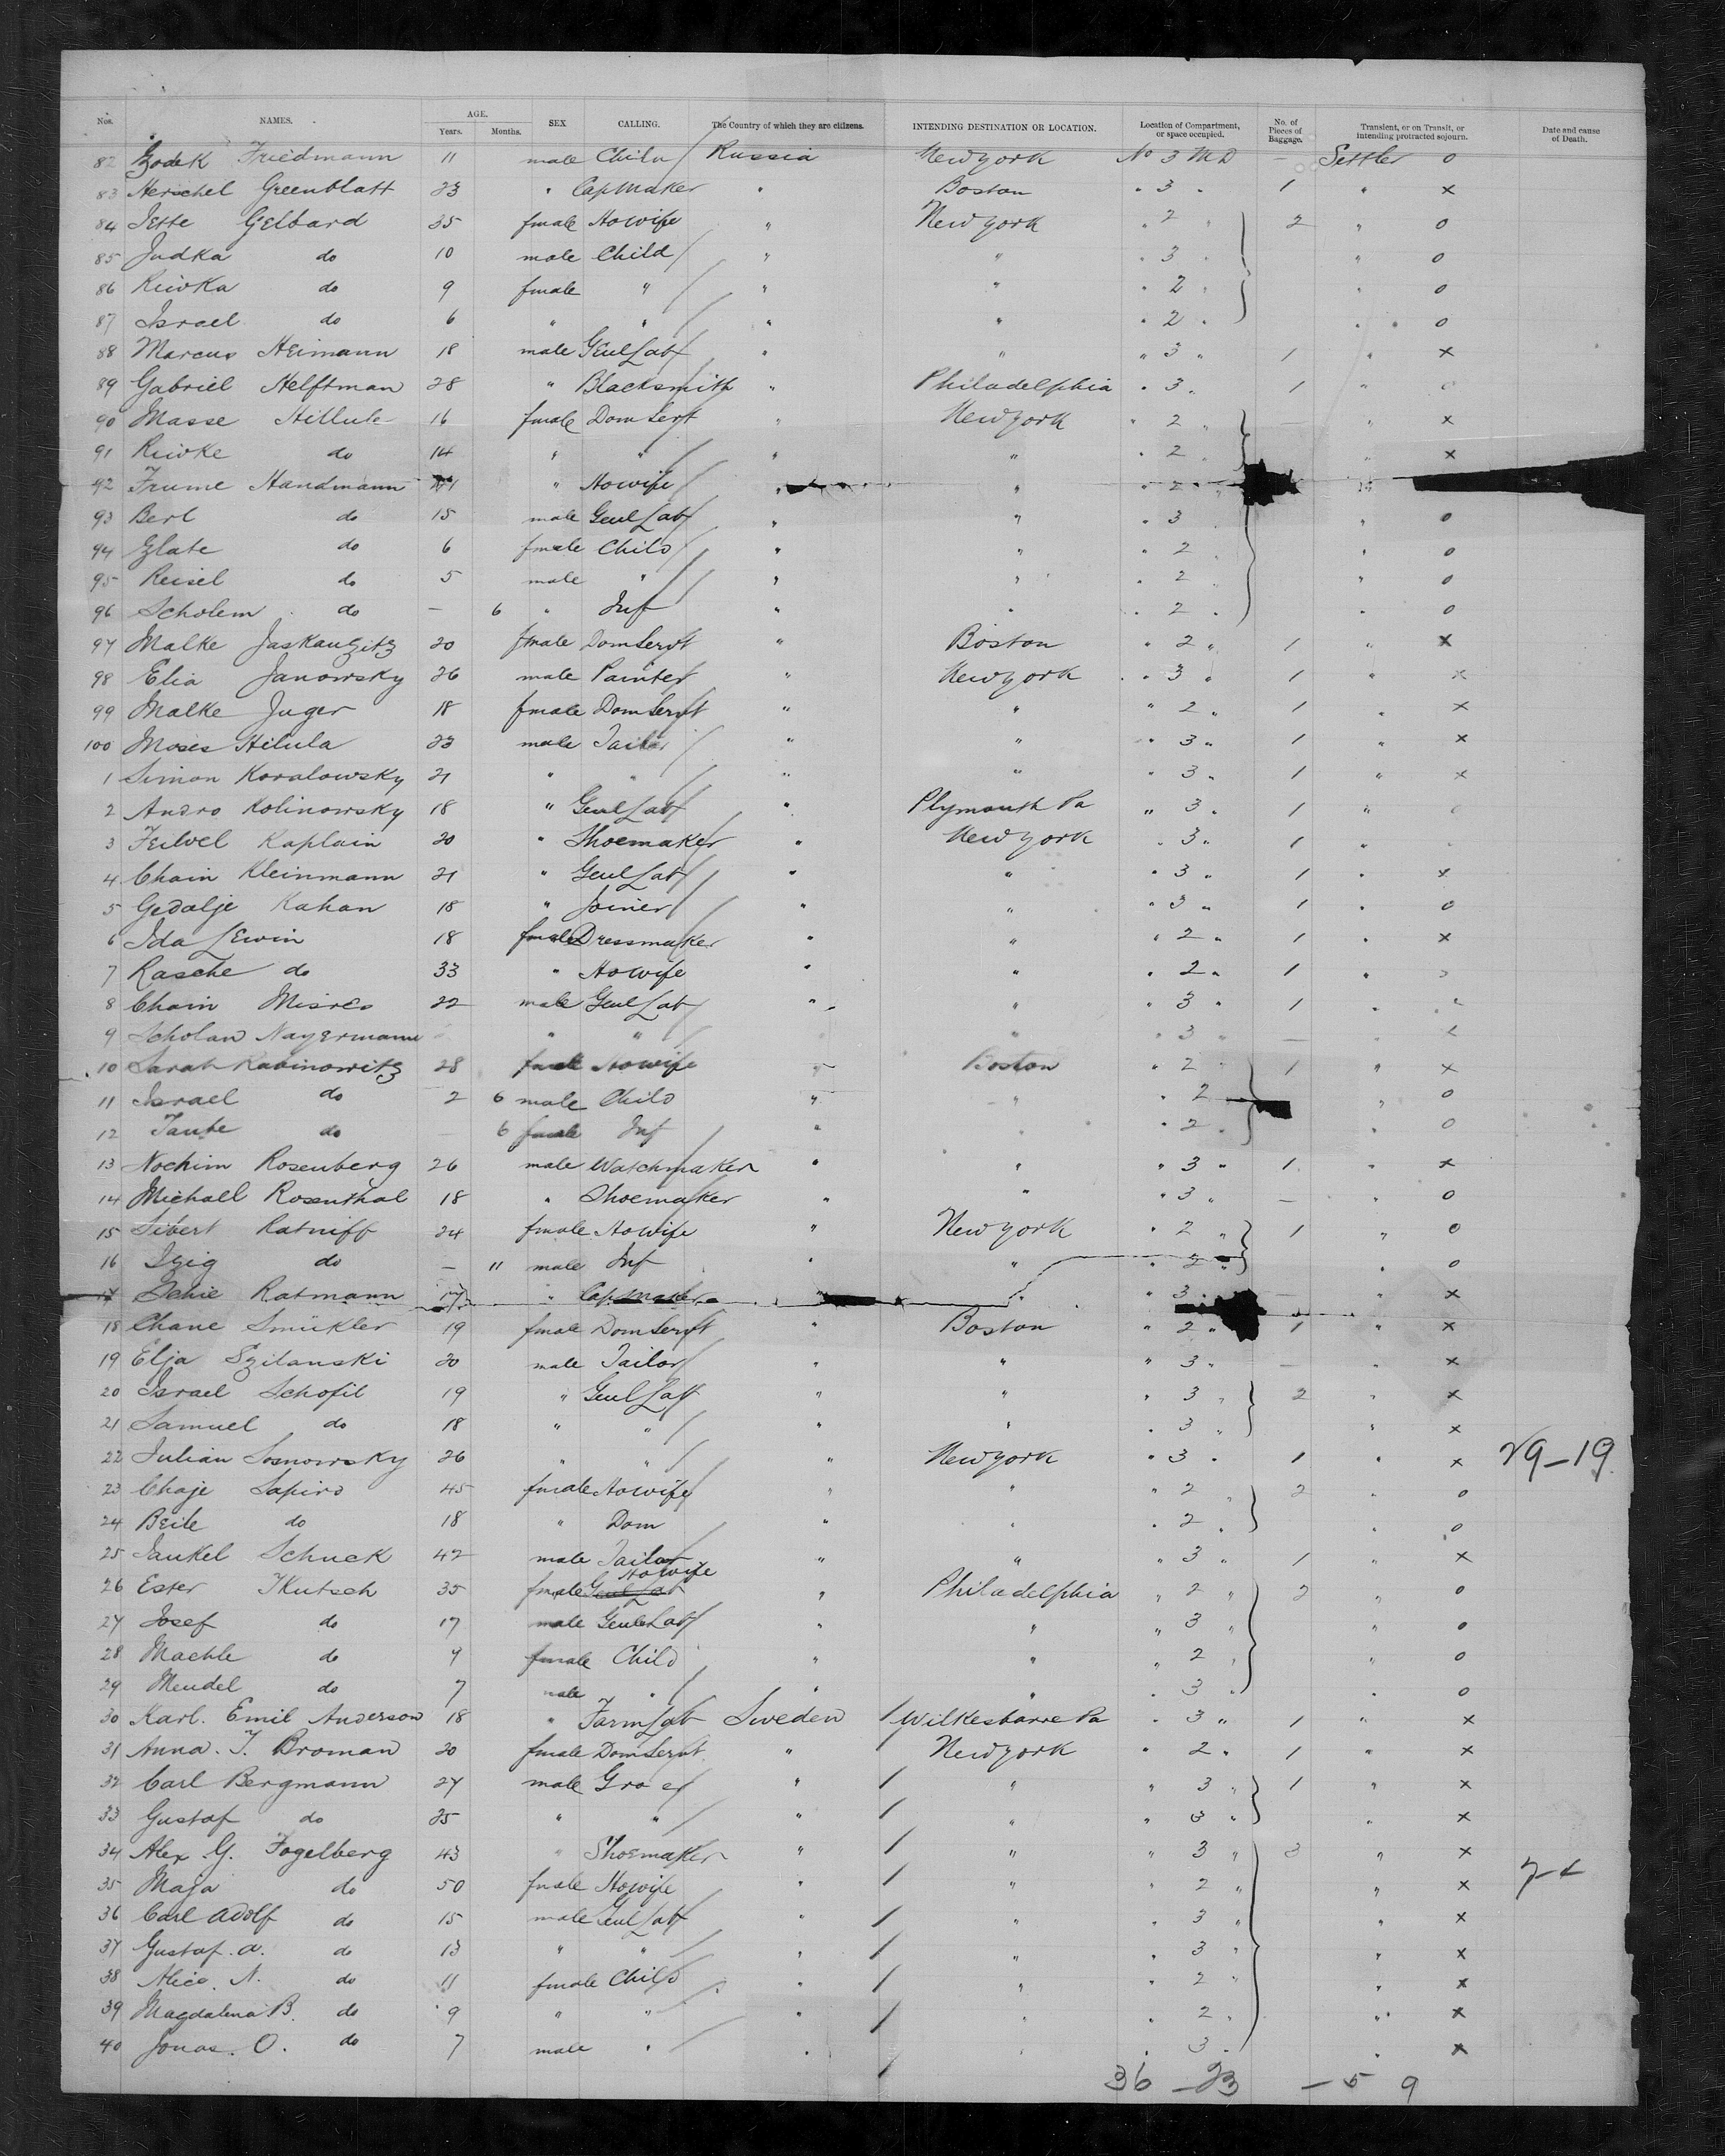 Nos. NAMES. AGE. Years. Months. SEX CALLING. The Country of which they are citizens. INTENDING DESTINATION OR LOCATION. Location of Compartment, or space occupied. No. of Pieces of Baggage. Transient, or on Transit, or Intending protracted sojourn. Date and cause of Death.
82 Friedmann 11 male Child Russia New york No 3 M D — Settler o
83 Herschel Greenblatt 23 " CapMaker " Boston " 3 " 1 " x
84 Jette Gelbard 35 fmale Howife " New york " 2 " 2 " o
85 Judka do 10 male Child " " " 3 " " o
86 Riwka do 9 fmale " " " " 2 " " o
87 Israel do 6 " " " " " 2 " " o
88 Marcus Heimann 18 male Genl Lab " " " 3 " 1 " x
89 Gabriel Helftman 28 " Blacksmith " Philadelphia " 3 " 1 " o
90 Masse 16 fmale Dom Servt " New york " 2 " — " x
91 Riwke do 14 " " " " " 2 " " x
92 Frume Handmann " Howife " " " 2 "
93 Berl do 15 male Genl Lab " " " 3 " " o
94 Zlate do 6 fmale Child " " " 2 " " o
95 Reisel do 5 male " " " " 2 " " o
96 Scholem do — 6 " Inf " " " 2 " " o
97 Malke 20 fmale Dom Servt " Boston " 2 " 1 " x
98 Elia Janowsky 26 male Painter " New york " 3 " 1 " x
99 Malke Juger 18 fmale Dom Servt " " " 2 " 1 " x
100 Moses Hilula 23 male Tailor " " " 3 " 1 " x
1 Simon Koralowsky 21 " " " " " 3 " 1 " x
2 Andro Kolinowsky 18 " Genl Lab " Plymouth Pa " 3 " 1 "
3 Feiwel Kaplain 20 " Shoemaker " New york " 3 " 1 "
4 Chain Kleinmann 21 " Genl Lab " " " 3 " 1 " x
5 Gedalje Kahan 18 " Joiner " " " 3 " 1 " o
6 Ida Lewin 18 fmale Dressmaker " " " 2 " 1 " x
7 Rasche do 33 " Howife " " " 2 " 1 "
8 Chain 22 male Genl Lab " " " 3 " 1 "
9 Scholan Nagermann " " " " 3 " — "
10 Sarah Rabinowitz 28 fmale Howife " Boston " 2 " 1 " x
11 Israel do 2 6 male Child " " " 2 " o
12 Taube do — 6 fmale Inf " " " 2 " " o
13 Nochim Rosenberg 26 male Watchmaker " " " 3 " 1 " x
14 Michael Rosenthal 18 " Shoemaker " " " 3 " — " o
15 Sibert Ratniff 24 fmale Howife " New york " 2 " 1 " o
16 Izig do — 11 male Inf " " " 2 " " o
17 Schie Ratmann 17 " Capmaker " " 3 " — " x
18 Chane Smükler 19 fmale Dom Servt " Boston " 2 " 1 " x
19 Elja Szilanski 20 male Tailor " " " 3 " — " x
20 Israel Schofil 19 " Genl Lab " " " 3 " 2 " x
21 Samuel do 18 " " " " " 3 " " x
22 Julian Sosnowsky 26 " " " New york " 3 " 1 " x 29–19
23 Chaje Sapiro 45 fmale Howife " " " 2 " 2 " o
24 Beile do 18 " Dom " " " 2 " " o
25 Jankel Schuck 42 male Tailor " " " 3 " 1 " x
26 Ester 35 fmale Howife " Philadelphia " 2 " 2 " o
27 Josef do 17 male Genl Lab " " " 3 " " o
28 Machle do 9 fmale Child " " " 2 " " o
29 Mendel do 7 male " " " " 3 " " o
30 Karl. Emil Anderson 18 " Farm Lab Sweden Wilkesbarre Pa " 3 " 1 " x
31 Anna. J. Broman 20 fmale Dom Servt " New york " 2 " 1 " x
32 Carl Bergmann 27 male Grocer " " " 3 " 1 " x
33 Gustaf do 25 " " " " " 3 " " x
34 Alex G. Fogelberg 43 " Shoemaker " " " 3 " 3 " x
35 Maja do 50 fmale Howife " " " 2 " " x
36 Carl Adolf do 15 male Genl Lab " " " 3 " " x
37 Gustaf. A. do 13 " " " " " 3 " " x
38 Alice. N. do 11 fmale Child " " " 2 " " x
39 Magdalena B. do 9 " " " " " 2 " " x
40 Jonas. O. do 7 male " " " " 3 " " x
36 – 23 – 5 9